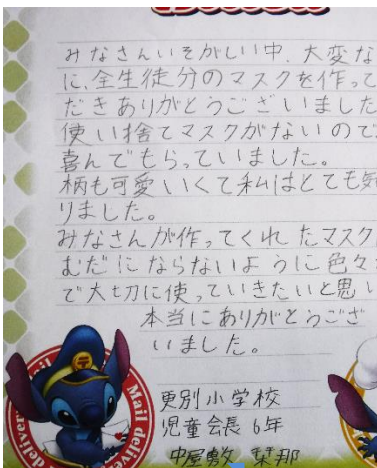 みなさんいそがしい中、大変な
に、全生徒分のマスクを作って
だきありがとうございました
使い捨てマスクがないので
喜んでもらっていました。
柄も可愛いくて私はとても気
りました。
みなさんが作ってくれたマスク
むだにならないように色々
で大切に使っていきたいと思い
本当にありがとうござ
いました。
更別小学校
児童会長 6年
中屋敷 琴那
Mail deliver